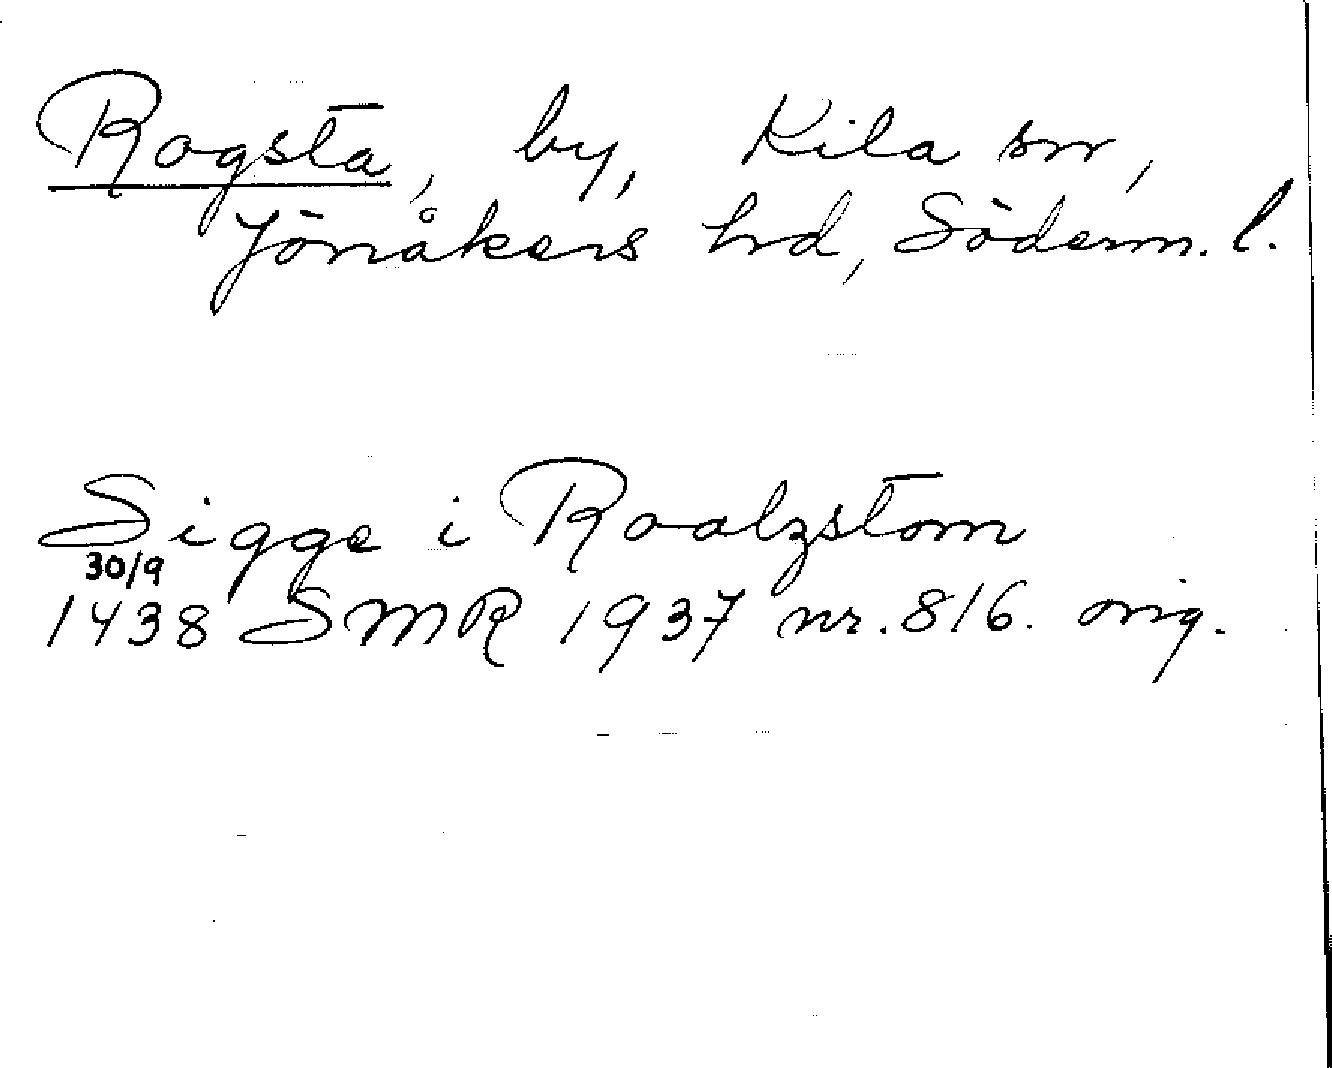 Rogsta, by, Kila sn,
Jönåkers hd, Söderm. l.
Sigge i Roalzstom
30/9
1438 SMR 1937 nr. 816. orig.